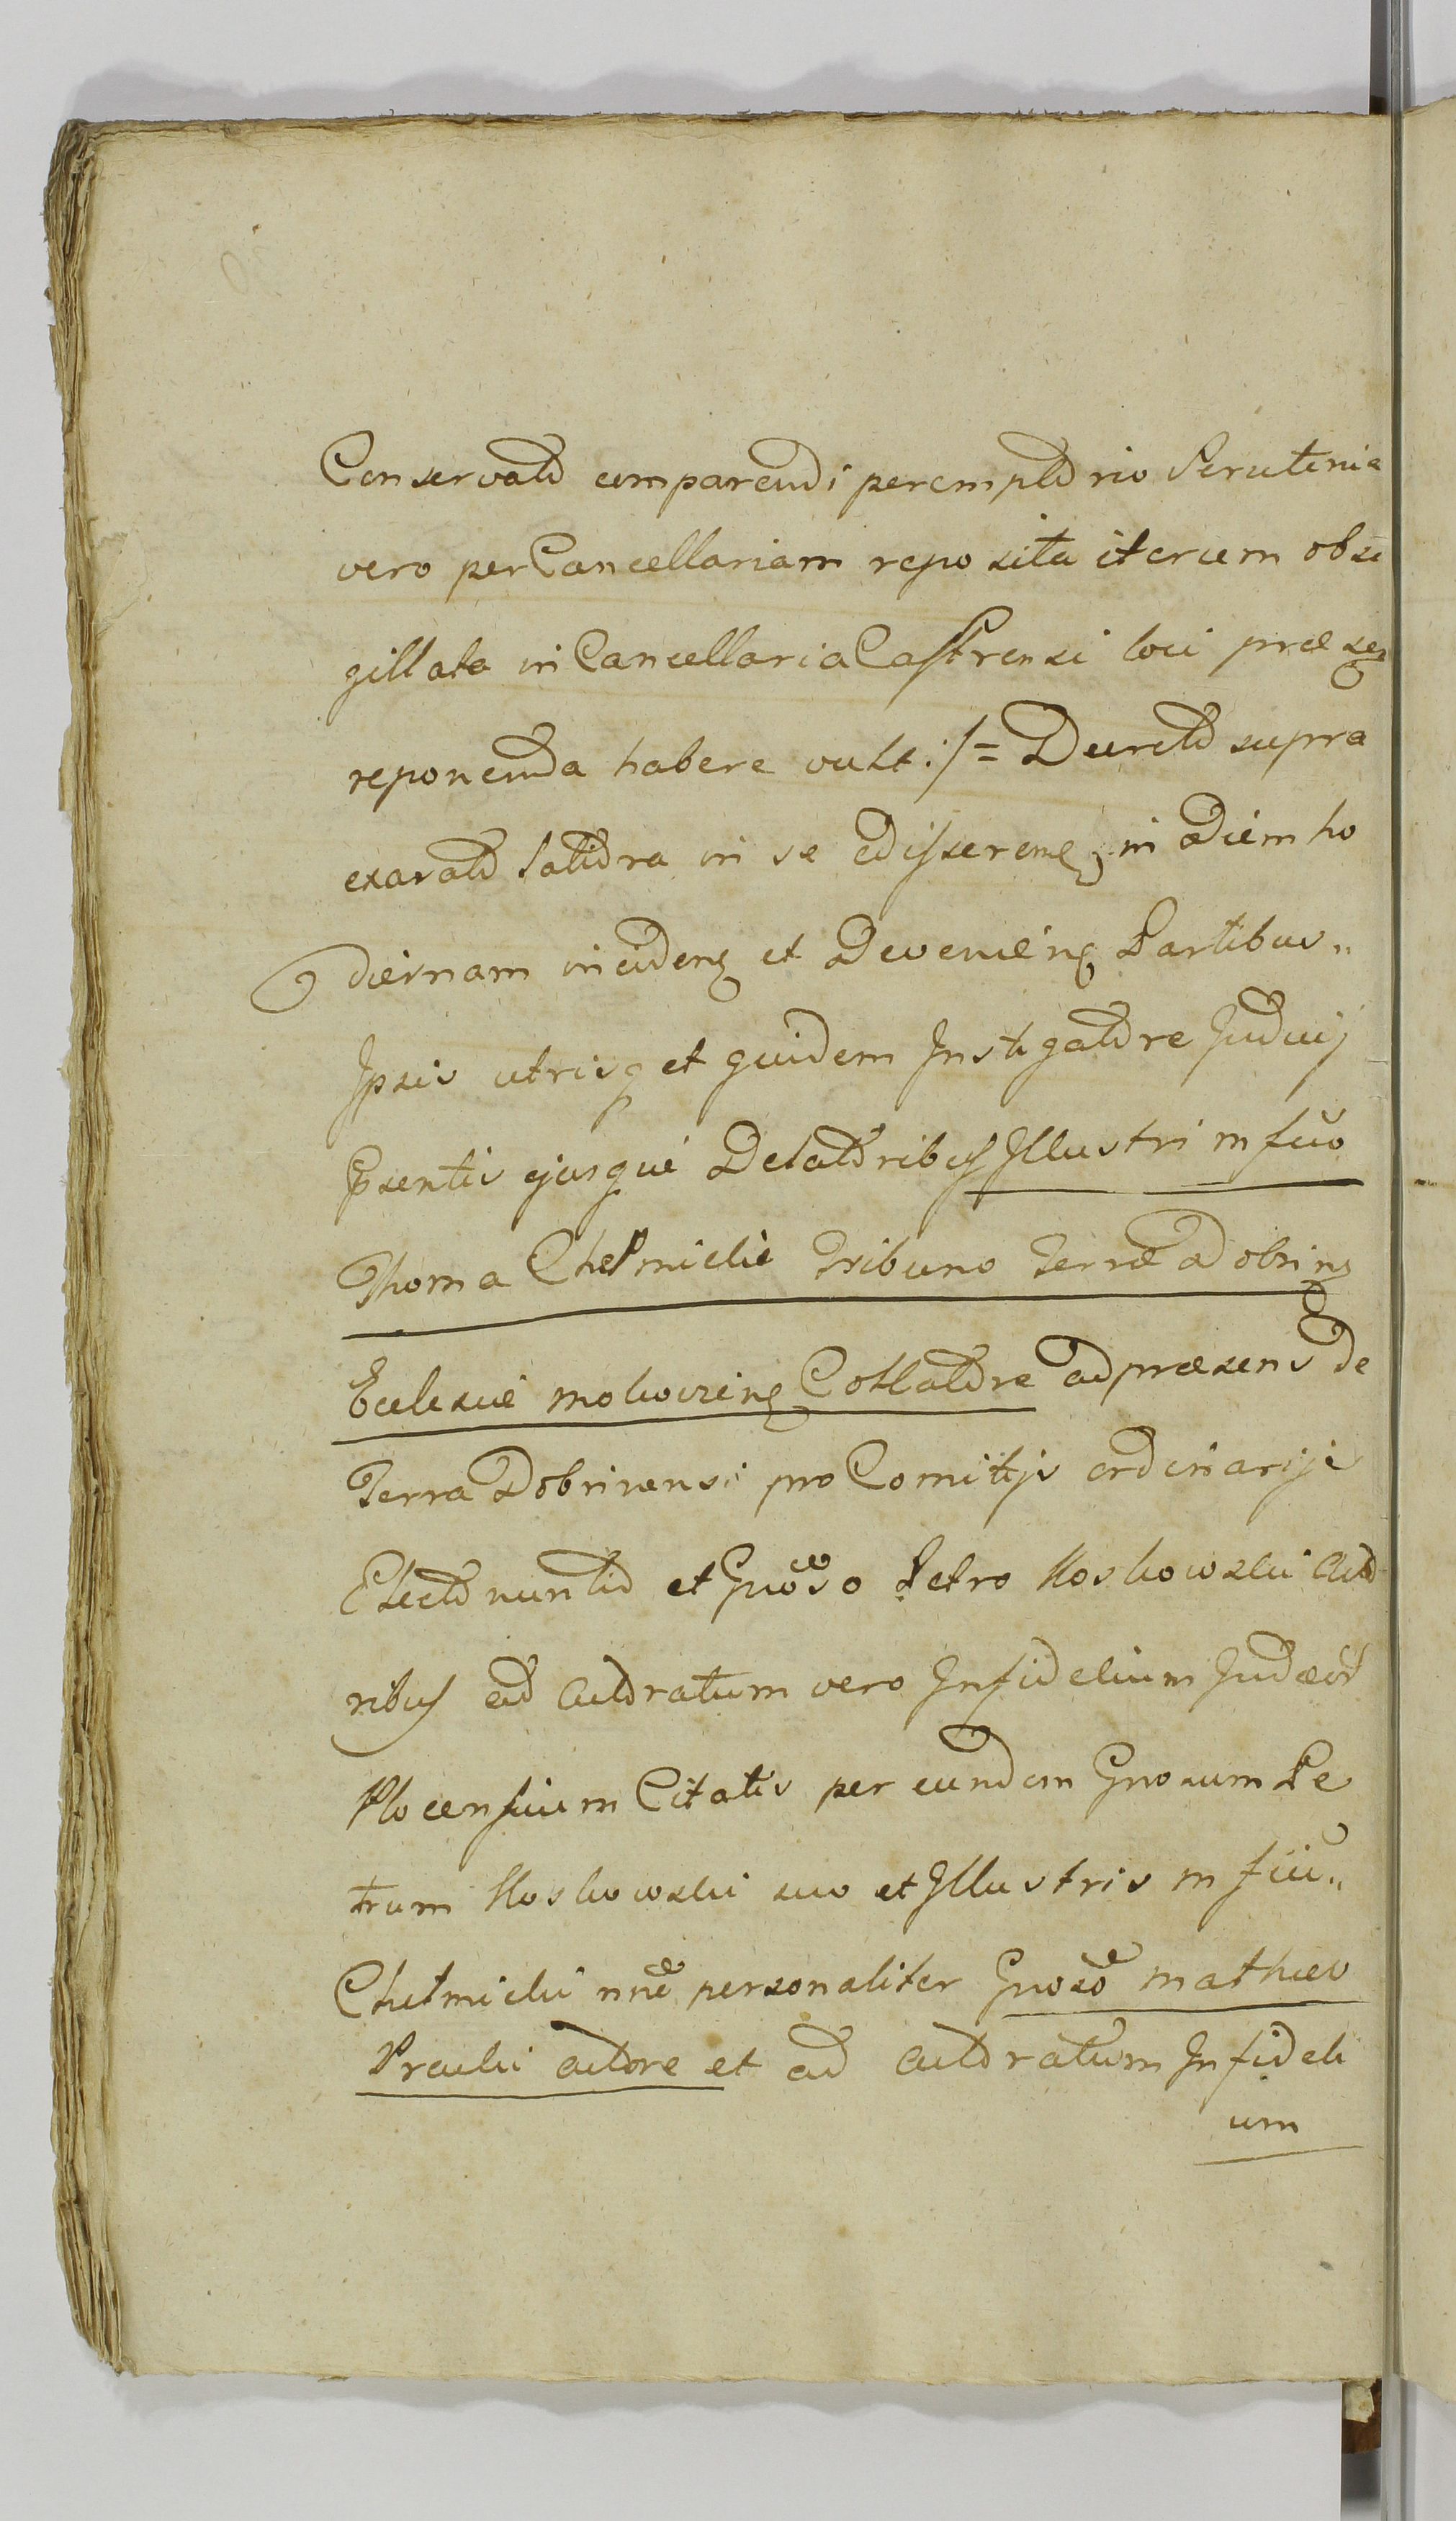 Conservato comparendi peremptorio Scrutinia
vero per Cancellariam reposita iterum obsi
gillata in Cancellaria Castrensi loci præsen
reponenda habere vult :/= Decreto supra
exarato latiora in se edisseren in Diem ho
diernam inciden et Devenien Partibus„
Ipsis utrisq et quidem Instigatore Judicij
Psentis ejusque Delatoribus Illustri mfico
Thoma Chełmicki Tribuno Terræ Dobrin
Ecclesiæ mokowien Collatore ad præsens de
Terra Dobrinensi pro Comitijs ordinarijs
Electo nuntio et Gnoso Petro Koskowski Acto
ribus ad Actoratum vero Infidelium Judæor
Plocensium Citatis per eundem Gnosum Pe
trum Koskowski suo et Illustris mfici„
Chełmicki nne personaliter Gnoso mathæo
Pracki Actore et ad Actoratum Infideli
um